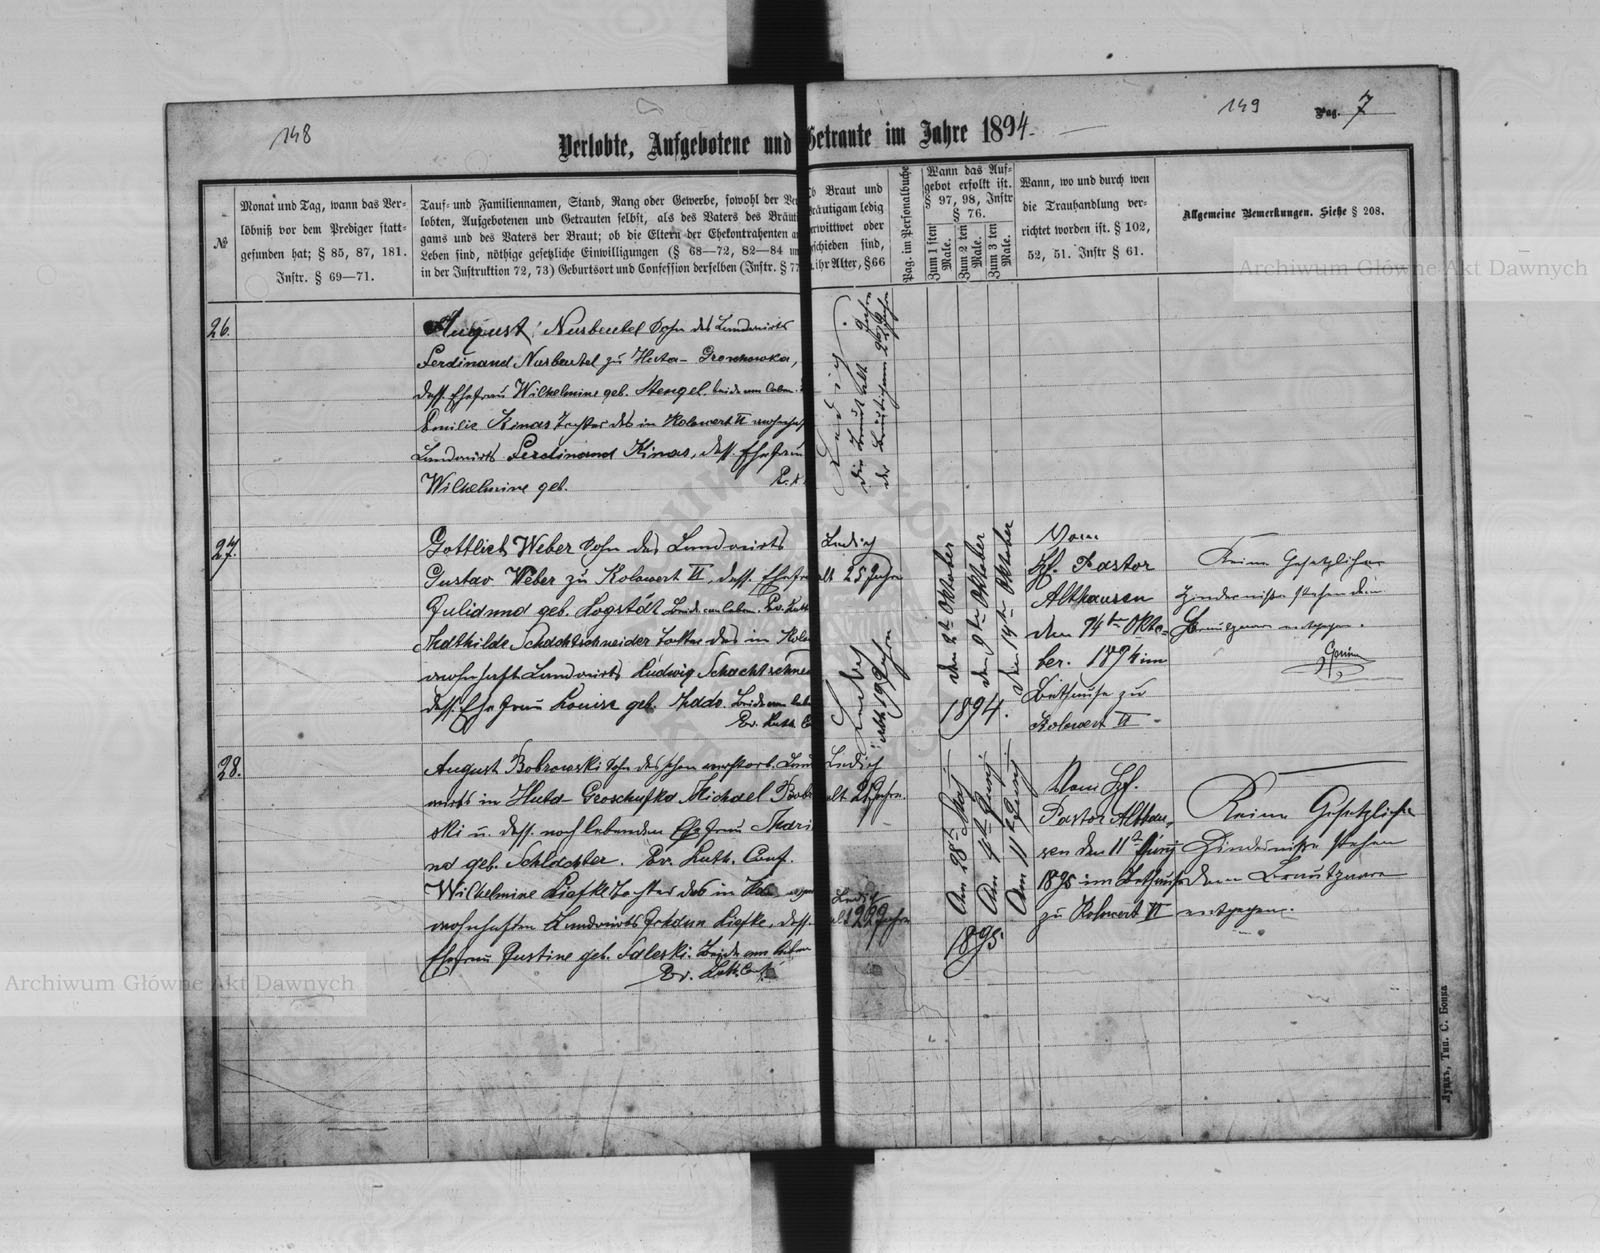 148
149
Pag. 7
Verlobte, Aufgebotene und Getraute im Jahre 1894.
№
Monat und Tag, wann das Ver-
löbniß vor dem Prediger statt-
gefunden hat; § 85, 87, 181.
Instr. § 69—71.
Tauf- und Familiennamen, Stand, Rang oder Gewerbe, sowohl der Ver
lobten, Aufgebotenen und Getrauten selbst, als des Vaters des Bräuti
gams und des Vaters der Braut; ob die Eltern der Ehekontrahenten a
Leben sind, nöthige gesetzliche Einwilligungen (§ 68—72, 82—84 un
in der Instruktion 72, 73) Geburtsort und Confession derselben (Instr. § 77
b Braut und
räutigam ledig
erwittwet oder
schieden sind,
ihr Alter, § 66
Pag. im Personalbuche
Wann das Auf-
gebot erfolkt ist.
§ 97, 98, Instr
§ 76.
Zum 1 sten
Male.
Zum 2 ten
Male.
Zum 3 ten
Male.
Wann, wo und durch wen
die Trauhandlung ver-
richtet worden ist. § 102,
52, 51. Instr § 61.
Allgemeine Bemerkungen. Siehe § 208.
26.
August Nusbeutel Sohn des Landwirts
Ferdinand Nusbeutel zu Huta-
dess. Ehefrau Wilhelmine geb. Stengel. beide am Leben.
Emilie Kinas Tochter des in Kolowert II wohnhaf
Landwirts Ferdinand Kinas, dess. Ehefrau
Wilhelmine geb.
Ledig.
die Braut alt Jahre
der Bräutigam 22 Jahre
27.
Gottlieb Weber Sohn des Landwirts
Gustav Weber zu Kolowert II, dess. Ehefra
Julianna geb. Logstädt beide am Leben. Ev. Luth
Mathilde Schachtschneider Tochter des in Kolo
wohnhaft Landwirts Ludwig Schachtschnei
dess. Ehefrau Louise geb. beide am Lebe
Ev. Luth. Co
Ledig
alt 25 Jahre
Ledig
alt 19 Jahre
den 2ten Oktober
den 9ten Oktober
den 14ten Oktober
1894.
Vom
Hf. Pastor
Althausen
den 14ten Okto-
ber. 1894 im
Bethause zu
Kolowert II
Keine Gesetzlichen
Hindernisse stehen dem
Brautpaar entgegen.
28.
August Bobrowski Sohn des schon verstorb. Land
wirts in Huta- Michael Bobr
ski u. dess. noch lebenden Ehefrau Mari
na geb. Schlachter. Ev. Luth. Conf.
Wilhelmine Liefke Tochter des in
wohnhaften Landwirts Liefke, dess.
Ehefrau Justine geb. Saleski. Beide am Leben
Ev. Luth. Conf
Ledig
alt Jahre.
Ledig
alt 22 Jahre
Am 28ten May
Am 4ten Junij
Am 11ten Junij
1895.
Vom Hf.
Pastor Althau-
sen den 11ten Junij
1895 im Bethause
zu Kolowert II
Keine Gesetzliche
Hindernisse stehen
dem Brautpaare
entgegen.
Луцкъ, Тип. С. Бонка
Archiwum Główne Akt Dawnych
Archiwum Główne Akt Dawnych